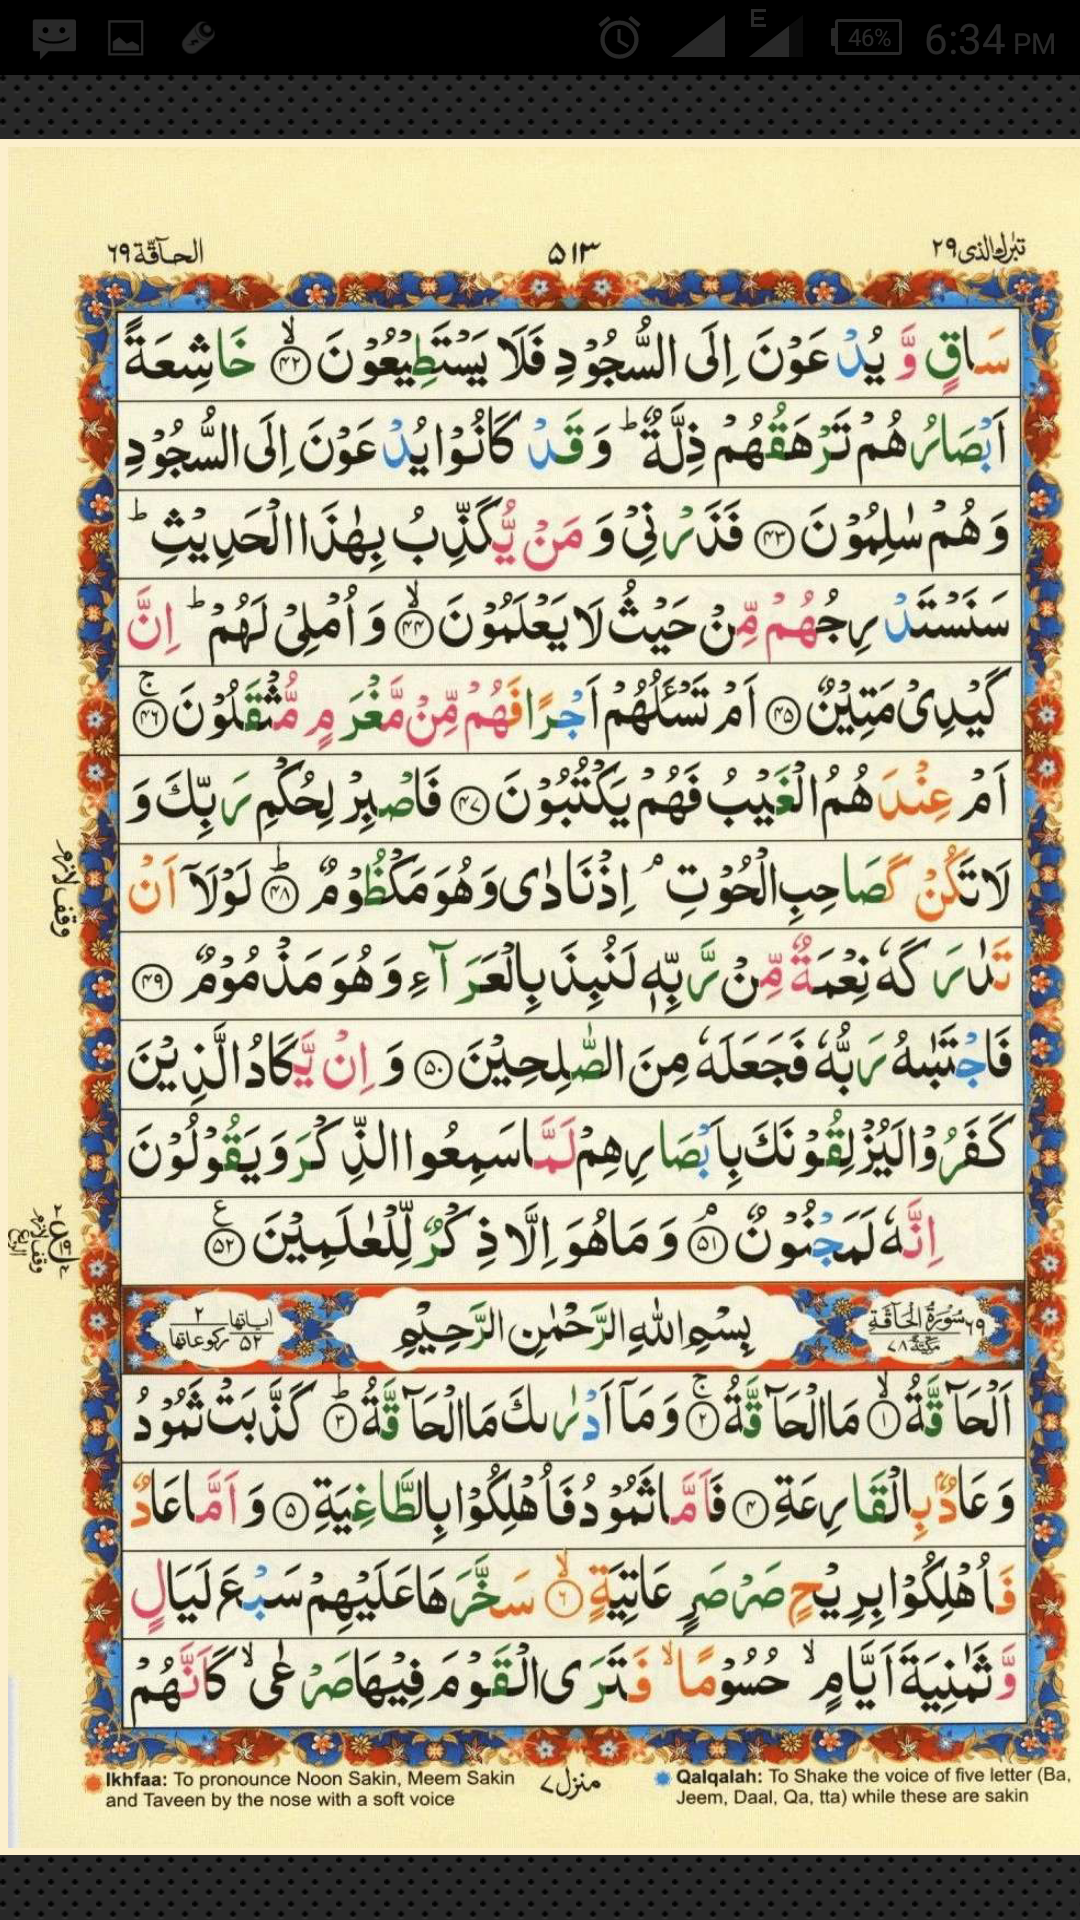 46%
6:34 PM
تبٰرك الذی ٢٩
٥١٣
الحآقّة ٦٩
سَاقٍ وَّ يُدْعَوْنَ اِلَى السُّجُوْدِ فَلَا يَسْتَطِيْعُوْنَ ۙ﴿۴۲﴾ خَاشِعَةً
اَبْصَارُهُمْ تَرْهَقُهُمْ ذِلَّةٌ ؕ وَقَدْ كَانُوْا يُدْعَوْنَ اِلَى السُّجُوْدِ
وَهُمْ سٰلِمُوْنَ ﴿۴۳﴾ فَذَرْنِيْ وَ مَنْ يُّكَذِّبُ بِهٰذَا الْحَدِيْثِ ؕ
سَنَسْتَدْرِجُهُمْ مِّنْ حَيْثُ لَا يَعْلَمُوْنَ ۙ﴿۴۴﴾ وَ اُمْلِيْ لَهُمْ ؕ اِنَّ
كَيْدِىْ مَتِيْنٌ ﴿۴۵﴾ اَمْ تَسْـَٔلُهُمْ اَجْرًا فَهُمْ مِّنْ مَّغْرَمٍ مُّثْقَلُوْنَ ۚ﴿۴۶﴾
اَمْ عِنْدَهُمُ الْغَيْبُ فَهُمْ يَكْتُبُوْنَ ﴿۴۷﴾ فَاصْبِرْ لِحُكْمِ رَبِّكَ وَ
لَا تَكُنْ كَصَاحِبِ الْحُوْتِ ۘ اِذْ نَادٰى وَهُوَ مَكْظُوْمٌ ؕ﴿۴۸﴾ لَوْلَاۤ اَنْ
تَدٰرَكَهٗ نِعْمَةٌ مِّنْ رَّبِّهٖ لَنُبِذَ بِالْعَرَآءِ وَهُوَ مَذْمُوْمٌ ﴿۴۹﴾
فَاجْتَبٰىهُ رَبُّهٗ فَجَعَلَهٗ مِنَ الصّٰلِحِيْنَ ﴿۵۰﴾ وَ اِنْ يَّكَادُ الَّذِيْنَ
كَفَرُوْا لَيُزْلِقُوْنَكَ بِاَبْصَارِهِمْ لَمَّا سَمِعُوا الذِّكْرَ وَيَقُوْلُوْنَ
اِنَّهٗ لَمَجْنُوْنٌ ۘ﴿۵۱﴾ وَمَا هُوَ اِلَّا ذِكْرٌ لِّلْعٰلَمِيْنَ ﴿۵۲﴾ ع
وقف لازم
٦٩ سُوْرَةُ الْحَآقَّةِ مَكِّيَّةٌ ٧٨
بِسْمِ اللهِ الرَّحْمٰنِ الرَّحِيْمِ
اٰياتها ٥٢ ركوعاتها ٢
اَلْحَآقَّةُ ۙ﴿۱﴾ مَا الْحَآقَّةُ ۚ﴿۲﴾ وَمَاۤ اَدْرٰىكَ مَا الْحَآقَّةُ ؕ﴿۳﴾ كَذَّبَتْ ثَمُوْدُ
وَعَادٌۢ بِالْقَارِعَةِ ﴿۴﴾ فَاَمَّا ثَمُوْدُ فَاُهْلِكُوْا بِالطَّاغِيَةِ ﴿۵﴾ وَ اَمَّا عَادٌ
فَاُهْلِكُوْا بِرِيْحٍ صَرْصَرٍ عَاتِيَةٍ ۙ﴿۶﴾ سَخَّرَهَا عَلَيْهِمْ سَبْعَ لَيَالٍ
وَّ ثَمٰنِيَةَ اَيَّامٍ ۙ حُسُوْمًا ۙ فَتَرَى الْقَوْمَ فِيْهَا صَرْعٰى ۙ كَاَنَّهُمْ
Ikhfaa: To pronounce Noon Sakin, Meem Sakin
and Taveen by the nose with a soft voice
منزل ٧
Qalqalah: To Shake the voice of five letter (Ba,
Jeem, Daal, Qa, tta) while these are sakin